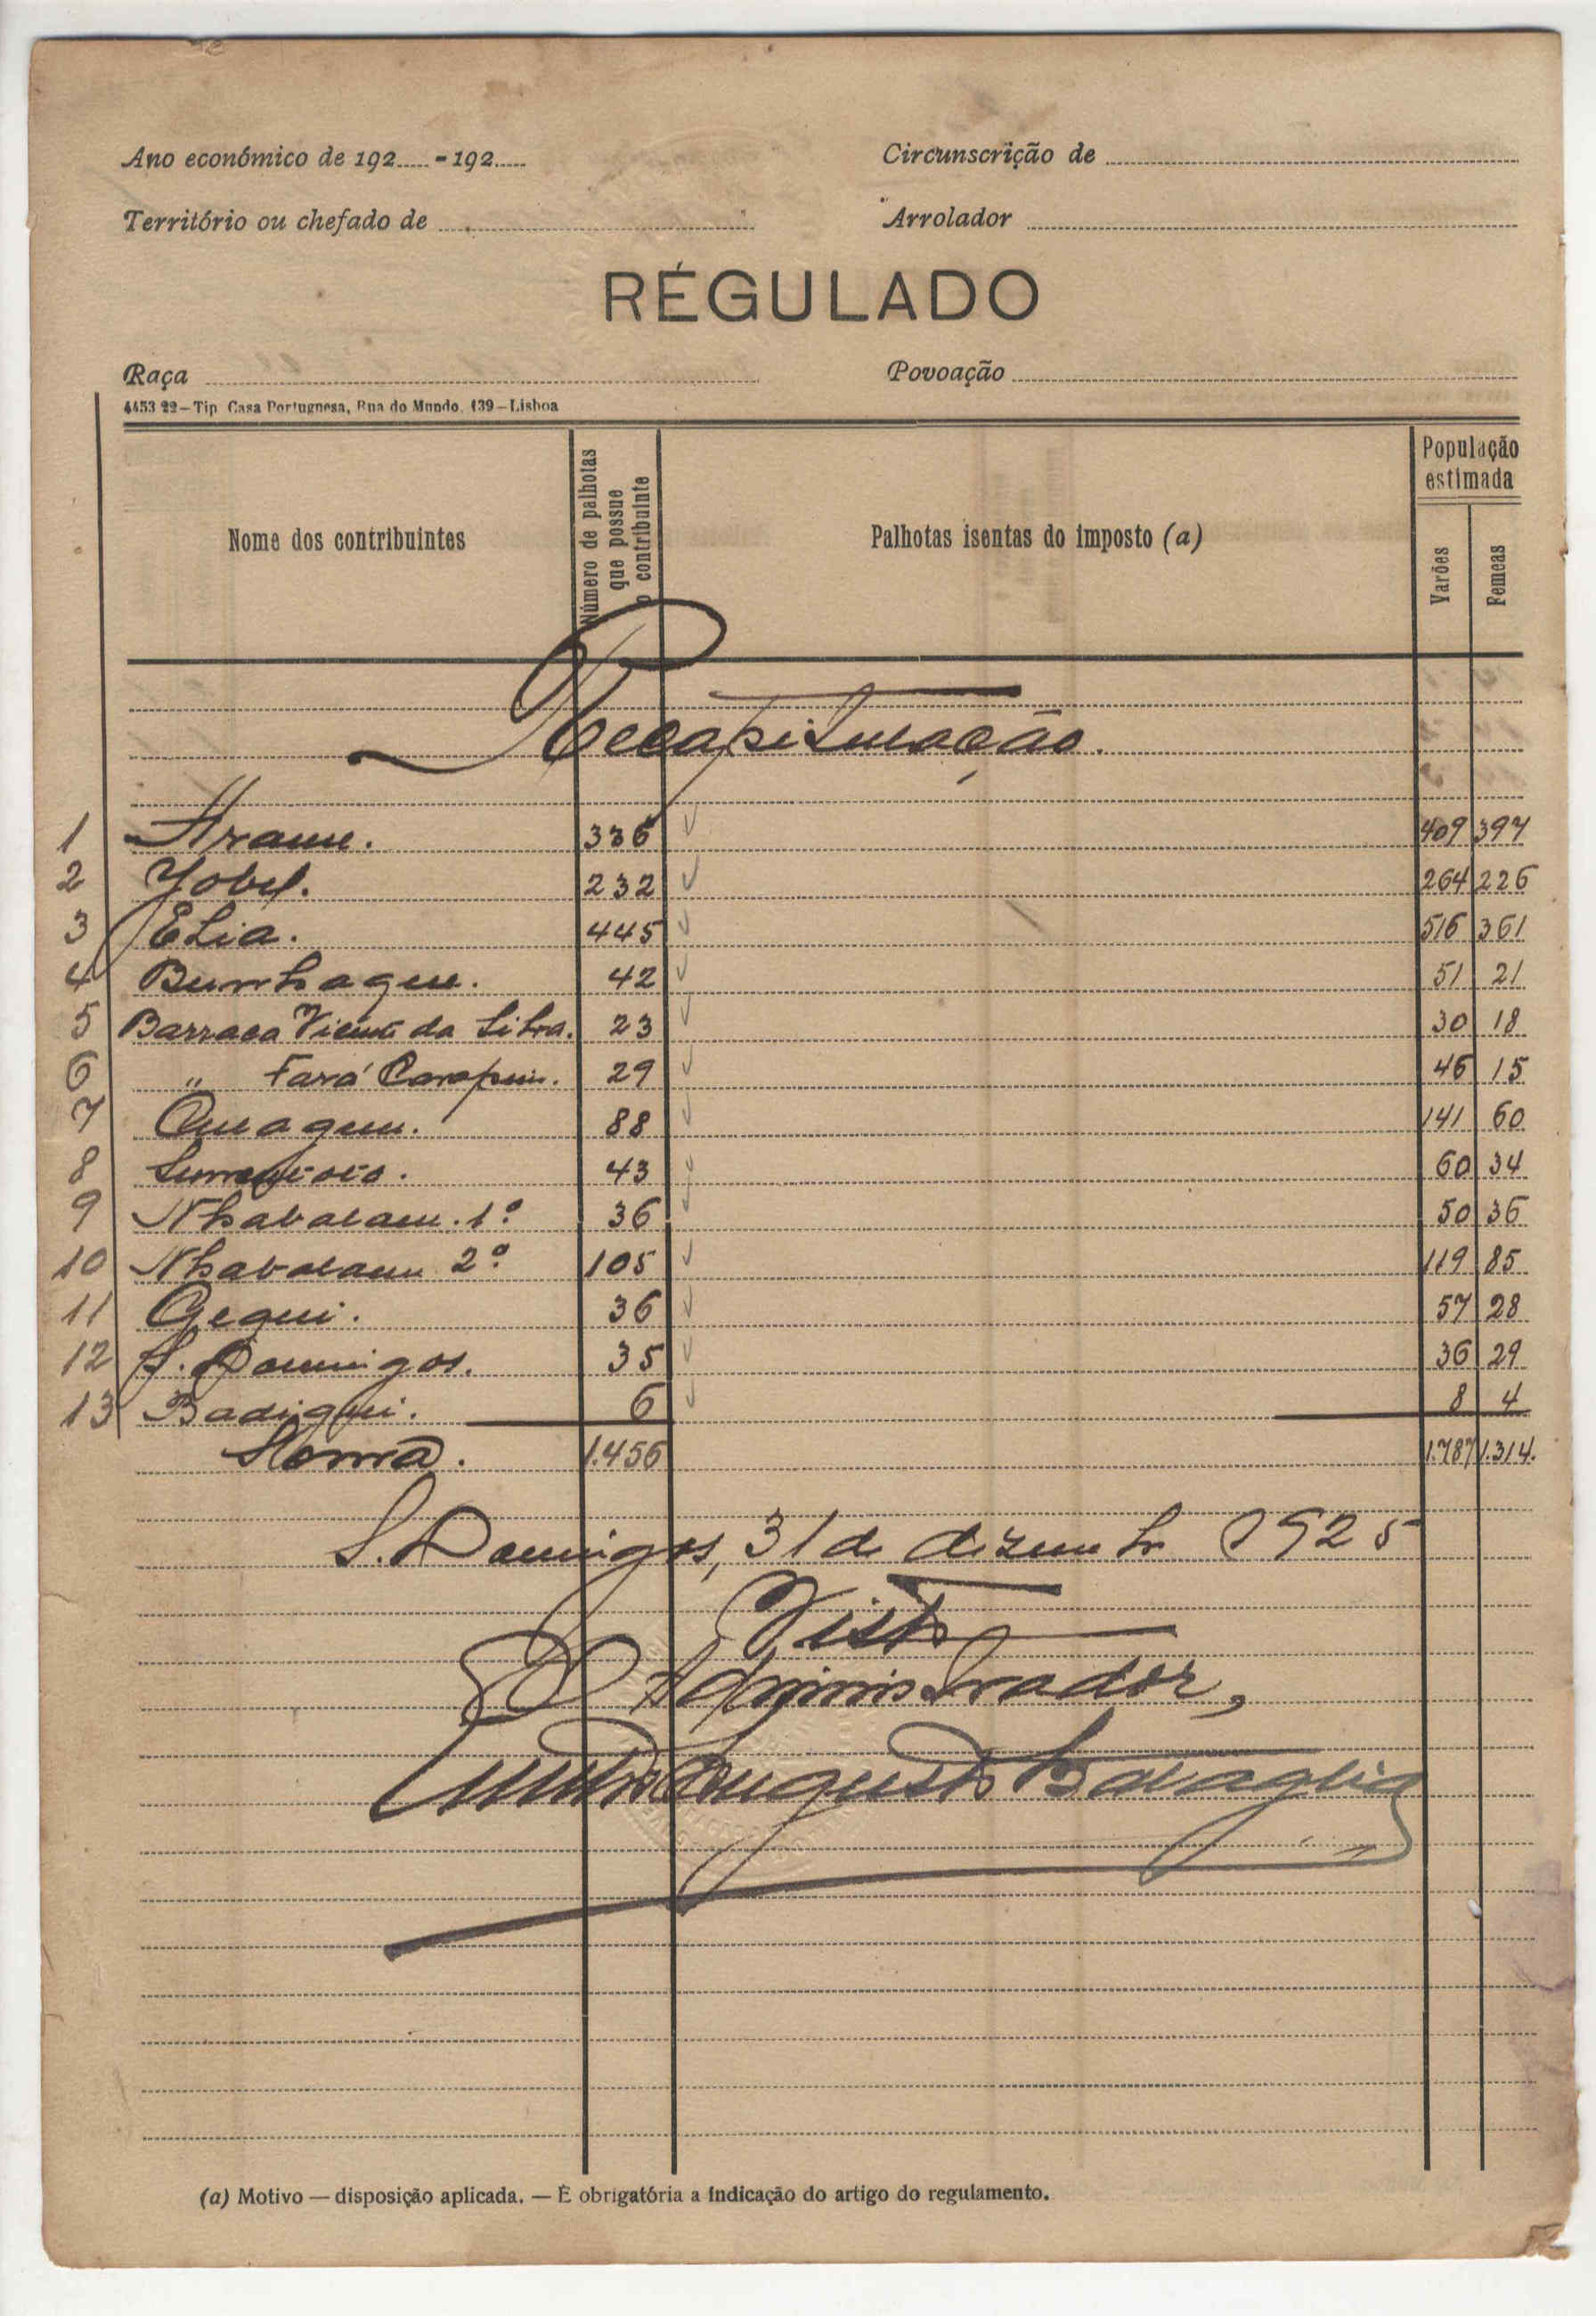 Ano económico de 192..... - 192..... Circunscrição de
Território ou chefado de Arrolador
RÉGULADO
Raça Povoação
4453 22 – Tip. Casa Portuguesa, Rua do Mundo, 139 – Lisboa
Nome dos contribuintes Número de palhotas que possue o contribuinte Palhotas isentas do imposto (a) População estimada Varões Femeas
Recapitulação.
1 Arame. 336 409 397
2 Jobel. 232 264 226
3 Elia. 445 516 361
4 Bunhaque. 42 51 21
5 Barraca Vicente da Silva. 23 30 18
6 „ Fará 29 46 15
7 88 141 60
8 43 60 34
9 1º 36 50 36
10 2º 105 119 85
11 Gequi. 36 57 28
12 S. Domingos. 35 36 29
13 Badiqui. 6 8 4
Soma. 1.456 1.787 1.314.
S. Domingos, 31 de dezembro 1925
Visto
O Administrador,
Augusto
(a) Motivo — disposição aplicada. — É obrigatória a indicação do artigo do regulamento.